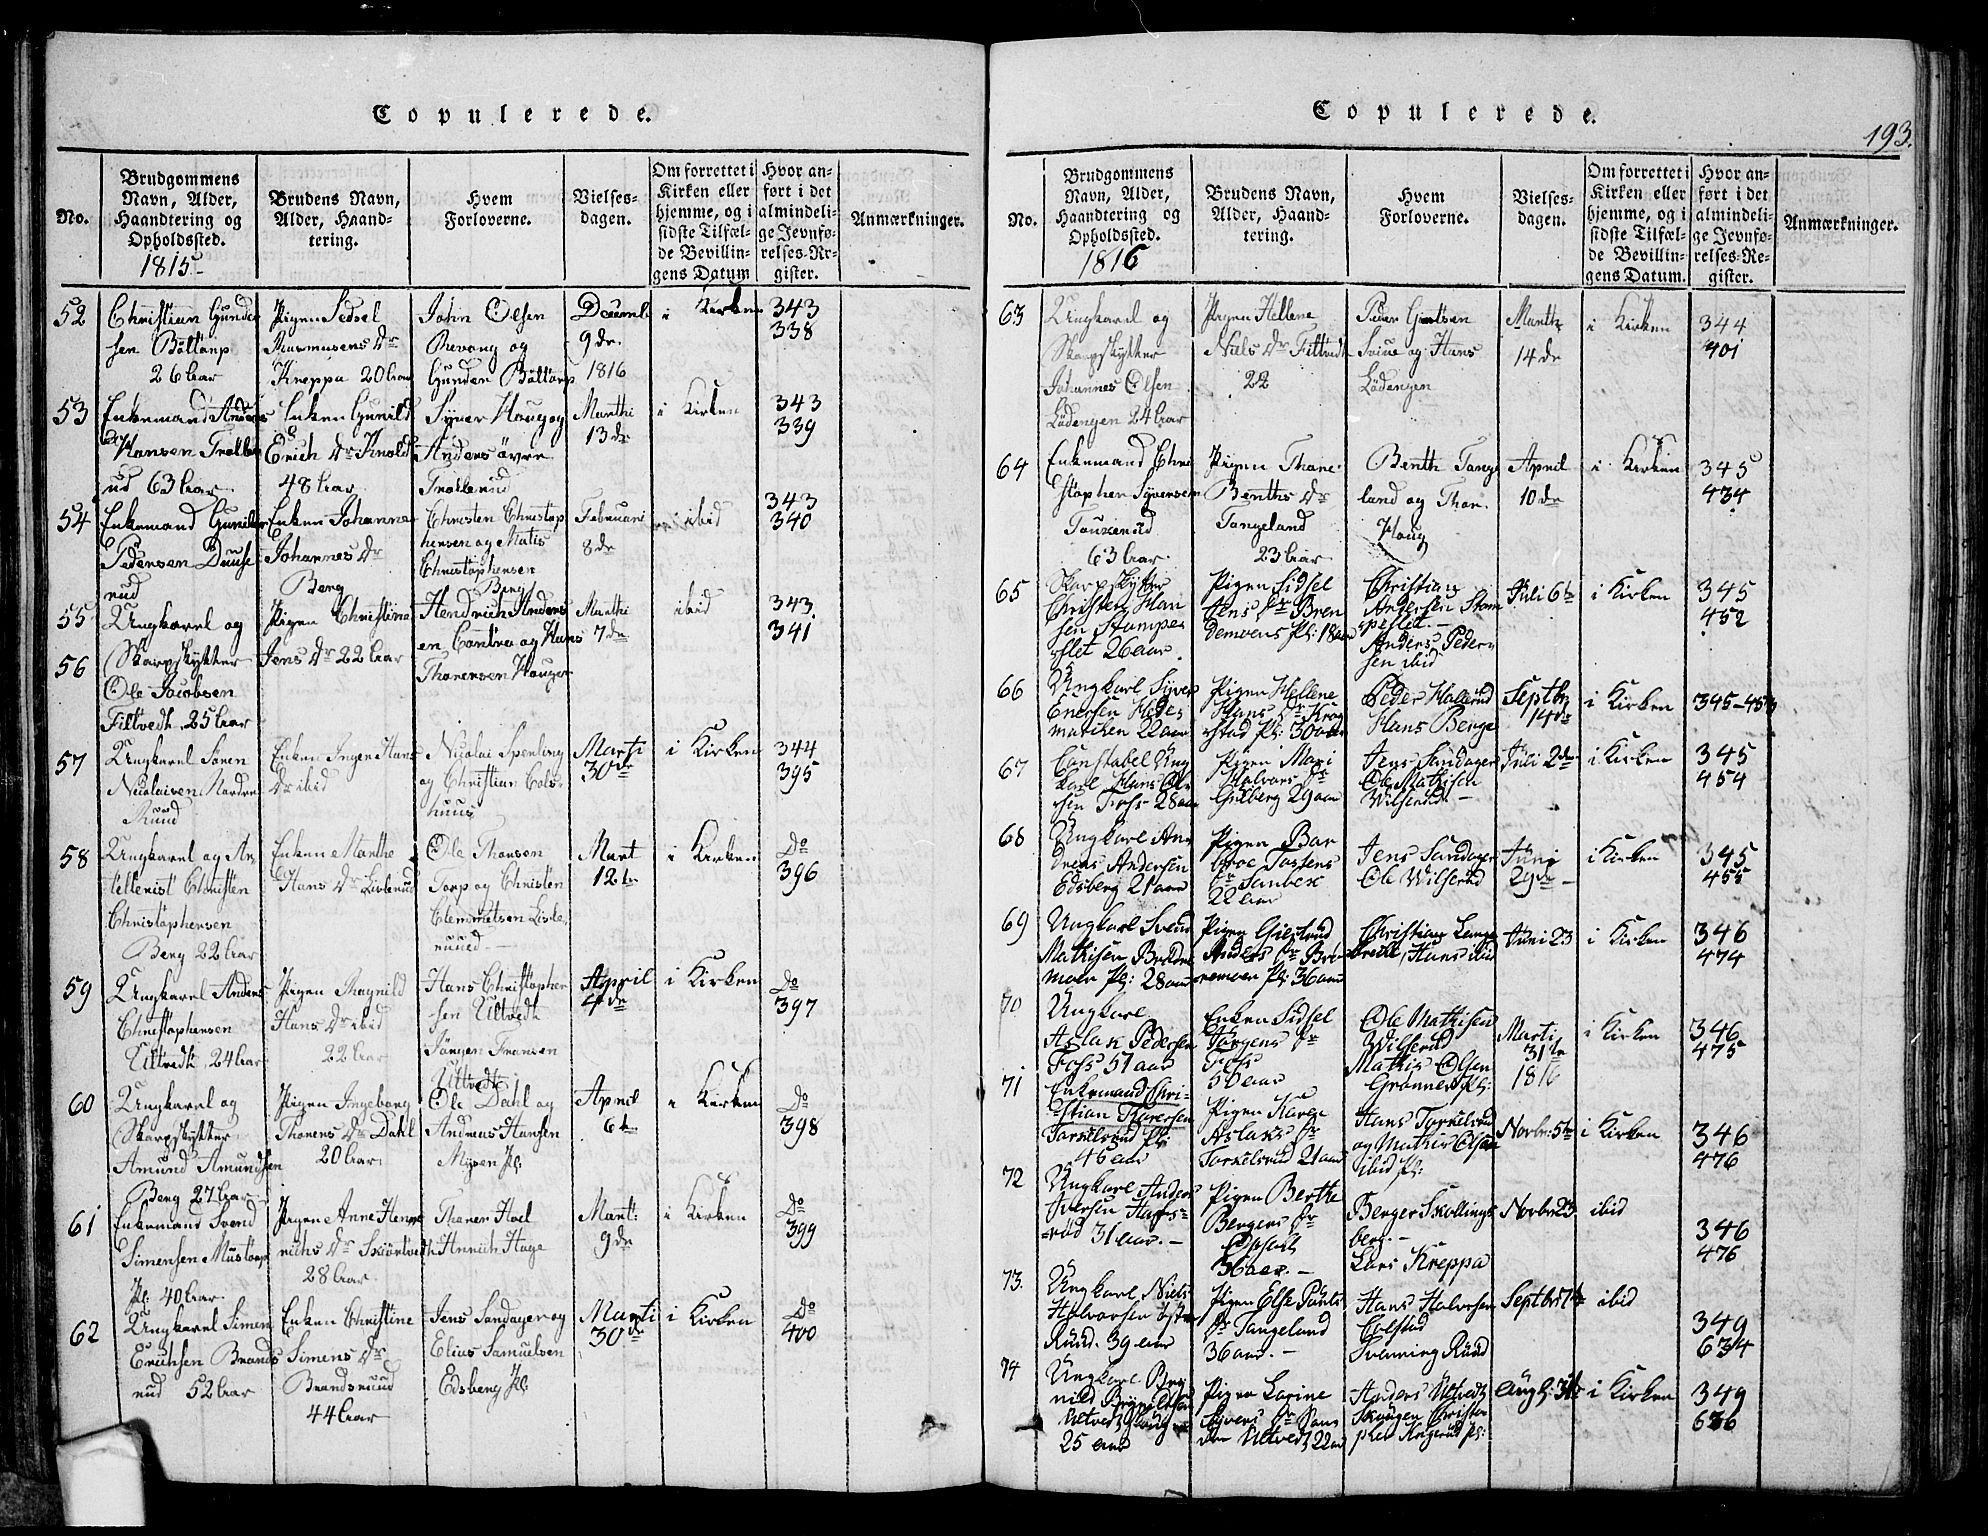 Copulerede.
No.
Brudgommens Navn, Alder, Haandtering og Opholdssted.
1815
Brudens Navn, Alder, Haandtering.
Hvem Forloverne.
Vielses-dagen.
Om forrettet i Kirken eller hjemme, og i sidste Tilfælde Bevillingens Datum
Hvor anført i det almindelige Jevnførelses-Register.
Anmærkninger.
52
Christian Gunder
sen Böltorp
26 Aar
Pigen Sedsel
Rasmusens Dr
Kreppa 20 Aar
John Olsen
Revong og
Gunder Böltorp
Decemb
9de
1816
i Kirken
343
338
53
Enkemand Anders
Hansen Trolle
rud 63 Aar
Enken Gunild
Erich Dr Knold
48 Aar
Syver Haug og
Anders övre
Trollerud
Marthi
13de
i Kirken
343
339
54
Enkemand Gunder
Pedersen Duuse
rud
Enken Johanne
Johannes Dr
Berg
Christen Christop
hensen og Matis
Christophensen
Berg
Februari
8de
ibid
343
340
55
56
Ungkarl og
Skarpskytter
Ole Jacobsen
Filtvedt 25 Aar
Pigen Christine
Jens Dr 22 Aar
Hendrich Anders
en og Hans
Thorensen Hauger
Marthi
7de
ibid
343
341
57
Ungkarl Sören
Nicolaisen Nordre
Ruud
Enken Inger Hans
Dr ibid
Nicolai Spenberg
og Christian Cols
huus
Marti
30de
i Kirken
344
395
58
Ungkarl og Ar
tillerist Christen
Christophensen
Berg 22 Aar
Enken Marthe
Hans Dr Lislerud
Ole Thorsen
Torp og Christen
Clemmetsen Lisle
ruud
Mart
12te
i Kirken
Do
396
59
Ungkarl Anders
Christophensen
Ultvedt 24 Aar
Pigen Ragnild
Hans Dr ibid
22 Aar
Hans Christopher
sen Ultvedt
Jörgen Fransen
Ultvedt
April
4de
i Kirken
Do
397
60
Ungkarl og
Skarpskytter
Amund Amundsen
Berg 27 Aar
Pigen Ingeborg
Thorens Dr Dahl
20 Aar
Ole Dahl og
Andreas Hansen
Mysen Pl:
April
6te
i Kirken
Do
398
61
Enkemand Svend
Simensen Mustorp
Pl: 40 Aar
Pigen Anne Hen
richs Dr Skiörtvedt
28 Aar
Thorer Hoel
Henrich Hage
Mart:
9de
i Kirken
Do
399
62
Ungkarl Simen
Erichsen Brands
rud 52 Aar
Enken Christine
Simens Dr
Brandsruud
44 Aar
Jens Sandager og
Elius Samuelsen
Edsberg Pl:
Marti
30de
i Kirken
Do
400
Copulerede.
193.
No.
Brudgommens Navn, Alder, Haandtering og Opholdssted.
1816
Brudens Navn, Alder, Haandtering.
Hvem Forloverne.
Vielses-dagen.
Om forrettet i Kirken eller hjemme, og i sidste Tilfælde Bevillingens Datum.
Hvor anført i det almindelige Jevnførelses-Register.
Anmærkninger.
63
Ungkarl og
Skarpskytter
Johannes Olsen
Lödengen 24 Aar
Pigen Hellene
Niels Dr Filtvedt
22
Peder Gertsen
og Hans
Lödengen
Marth
14de
i Kirken
344
401
64
Enkemand Chri
stopher Syversen
63 Aar
Pigen Thore
Benths Dr
Tangeland
23 Aar
Benth Tange
land og Thor
Haug
April
10de
i Kirken
345
434
65
Skarpskytter
Christen Han
sen Stamper
flet 26 aar
Pigen Sidsel
Jens Dr Bren
demoens Pl: 18 aar
Christian
Andersen Stam
perflet.
Anders Peder
sen ibid
Juli 6te
i Kirken
345
452
66
Ungkarl Syver
Enersen Hede
marken 22 aar
Pigen Hellene
Hans Dr Krog
stad Pl: 30 aar
Peder Hallerud
Hans Berge
Septbr
14de
i Kirken
345-453
67
Constabel Ung
karl Hans Ol
sen Foss 28 aar
Pigen Mari
Halvors Dr
Gulberg 29 aar
Jens Sandager
Ole Mathisen
Wilserud
Juli 2de
i Kirken
345
454
68
Ungkarl An
dreas Andersen
Edsberg 21 aar
Pigen Bar
broe Torstens
Dr Sanbek
22 aar
Jens Sandager
Ole Wilserud
Juni
29de
i Kirken
345
455
69
Ungkarl Svend
Mathisen Brende
moen Pl: 28 aar
Pigen Giertrud
Anders Dr Bre
nemoen Pl: 36 aar
Christian Lange
Hans ibid
Juni 23
i Kirken
346
474
70
Ungkarl
Aslak Pedersen
Foss 51 aar
Enken Sidsel
Jörgens Dr
Foss
50 aar
Ole Mathisen
Wilserud
Mathis Olsen
Grönnen Pl:
Marti
31te
1816
i Kirken
346
475
71
Enkemand Chri-
stian Thoresen
Torkelsrud Pl:
46 aar
Pigen Karen
Aslaks Dr
Torkelsrud 21 aar
Hans Torkelsrud
og Mathis Olsen
ibid Pl:
Novbr: 5te
i Kirken
346
476
72
Ungkarl Anders
Iversen Hafs-
rød 31 aar.
Pigen Berthe
Bergers Dr
36 aar.
Berger Skollings
berg.
Lars Kreppa
Novbr 23
ibid
346
476
73.
Ungkarl Niels
Halvorsen öster
Ruud. 39 aar
Pigen Else Pauls
Dr Tangeland
36 aar.
Hans Halvorsen
Colstad
Svenning Ruud
Septbr 7de
ibid
349
634
74
Ungkarl Bry
nild Brynildsen
Ultvedt
25 aar
Pigen Karine
Syvers Dr San
den Ultvedt 22 aar
Anders Ultvedt
Skougen Christo
pher Pl:
Aug: 31te
i Kirken
349
636